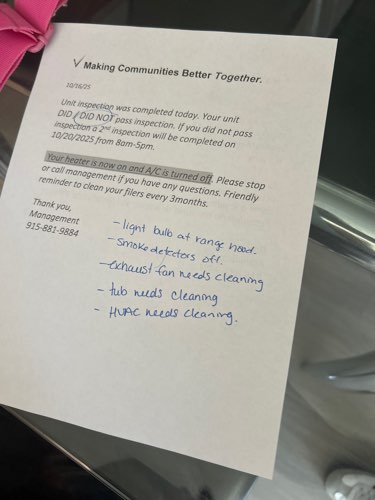 ✓ Making Communities Better Together.
10/16/25
Unit inspection was completed today. Your unit
DID / DID NOT pass inspection. If you did not pass
inspection a 2nd inspection will be completed on
10/20/2025 from 8am-5pm.
Your heater is now on and A/C is turned off. Please stop
or call management if you have any questions. Friendly
reminder to clean your filers every 3months.
Thank you,
Management
915-881-9884
- light bulb at range hood.
- Smoke detectors off.
- exhaust fan needs cleaning
- tub needs cleaning
- HVAC needs cleaning.